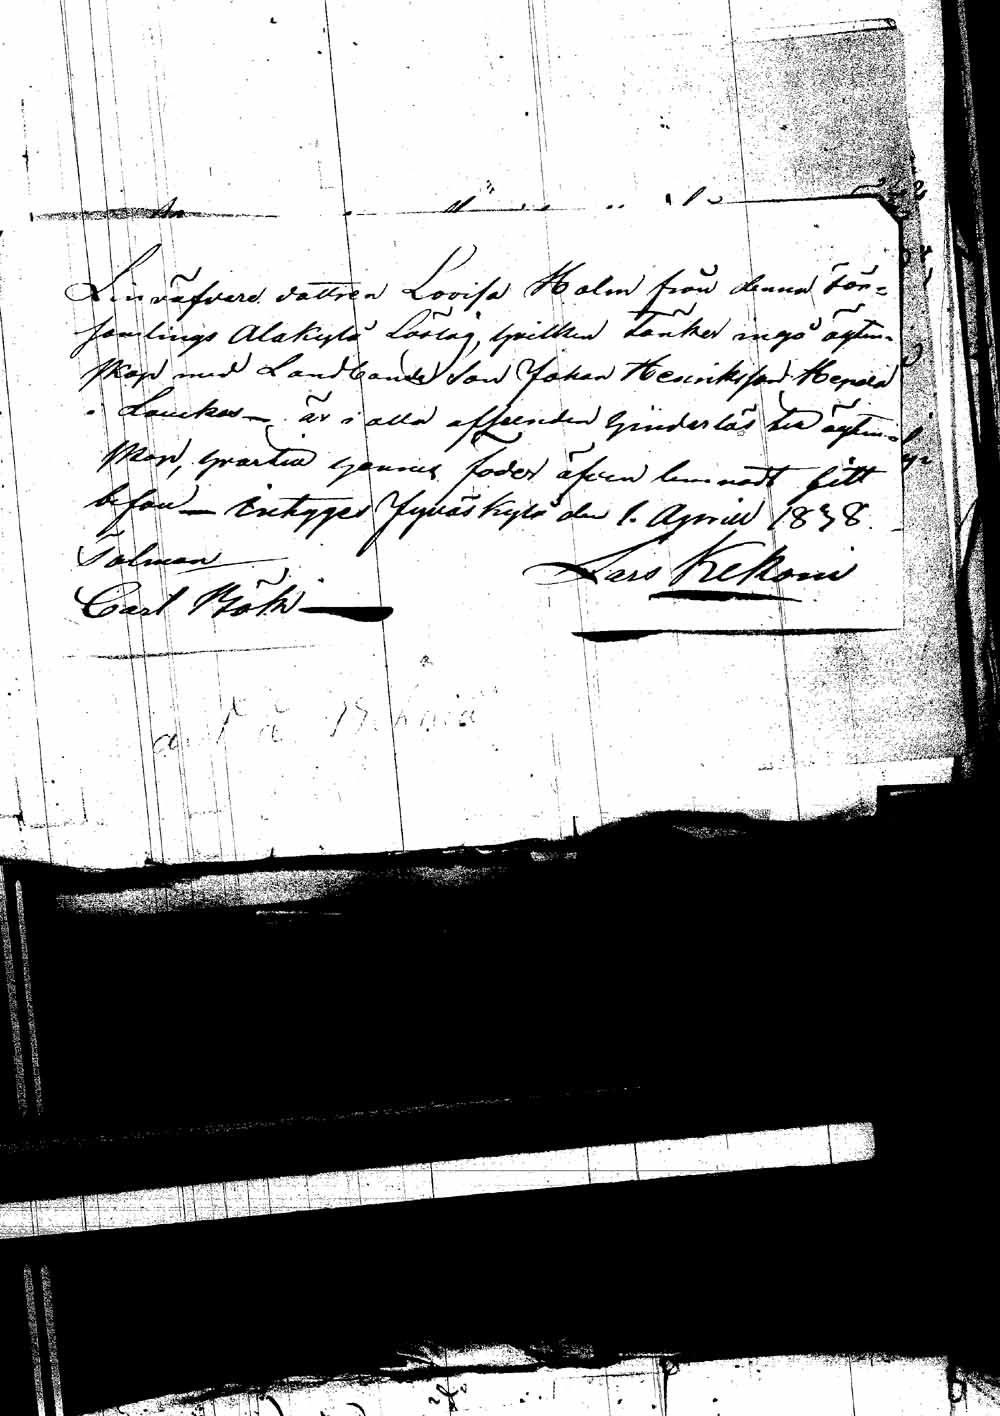 Linväfvare dottren Lovisa Holm från denna för=
samlings Alakylä Löstäg, hvilken tänker ingå ägten-
skap med Landbonde Son Johan Henriksson Hepola
i Laukas — är i alla afseenden hinderlös till ägten-
skap, hvartill hennes foder äfven lemnadt sitt
bifall — Intygges Jyväskylä den 1. Aprill 1838.
Tolman
Carl Böök
Lars Kekoni